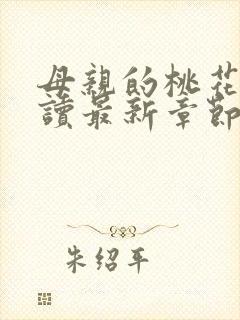 母親的桃花
讀最新章節
朱绍平